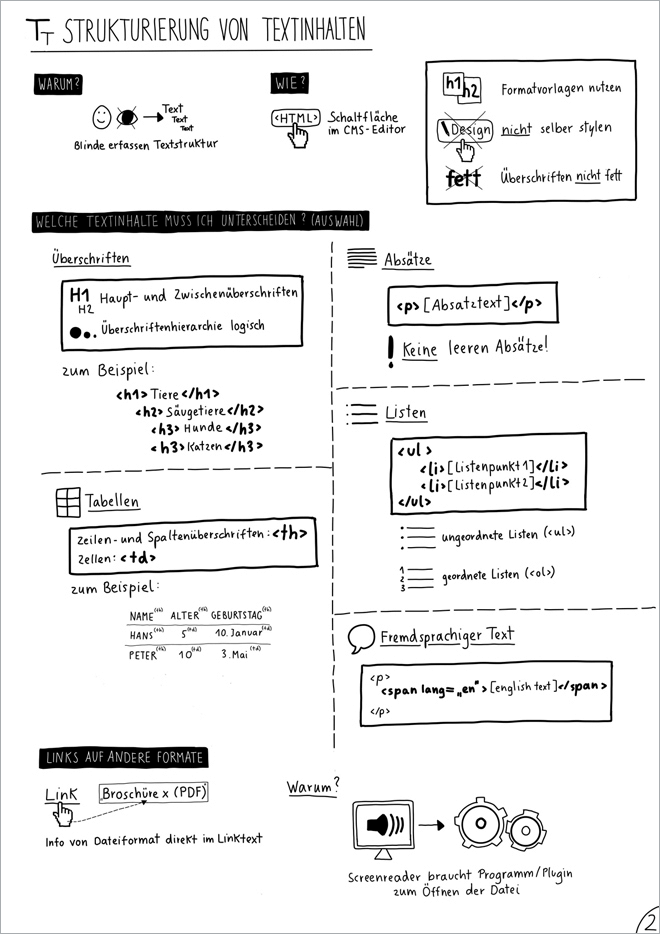 TT STRUKTURIERUNG VON TEXTINHALTEN
WARUM?
Text
Text
Text
Blinde erfassen Textstruktur
WIE?
<HTML> Schaltfläche
im CMS-Editor
h1
h2
Formatvorlagen nutzen
Design nicht selber stylen
fett Überschriften nicht fett
WELCHE TEXTINHALTE MUSS ICH UNTERSCHEIDEN? (AUSWAHL)
Überschriften
H1 Haupt- und Zwischenüberschriften
H2
Überschriftenhierarchie logisch
zum Beispiel:
<h1> Tiere </h1>
<h2> Säugetiere </h2>
<h3> Hunde </h3>
<h3> Katzen </h3>
Tabellen
Zeilen- und Spaltenüberschriften: <th>
Zellen: <td>
zum Beispiel:
NAME (th) ALTER (th) GEBURTSTAG (th)
HANS (th) 5 (td) 10. Januar (td)
PETER (th) 10 (td) 3. Mai (td)
Absätze
<p> [Absatztext] </p>
! Keine leeren Absätze!
Listen
<ul>
<li> [Listenpunkt 1] </li>
<li> [Listenpunkt 2] </li>
</ul>
ungeordnete Listen (<ul>)
1
2
3
geordnete Listen (<ol>)
Fremdsprachiger Text
<p>
<span lang="en"> [english text] </span>
</p>
LINKS AUF ANDERE FORMATE
Link Broschüre x (PDF)
Info von Dateiformat direkt im Linktext
Warum?
Screenreader braucht Programm/Plugin
zum Öffnen der Datei
2